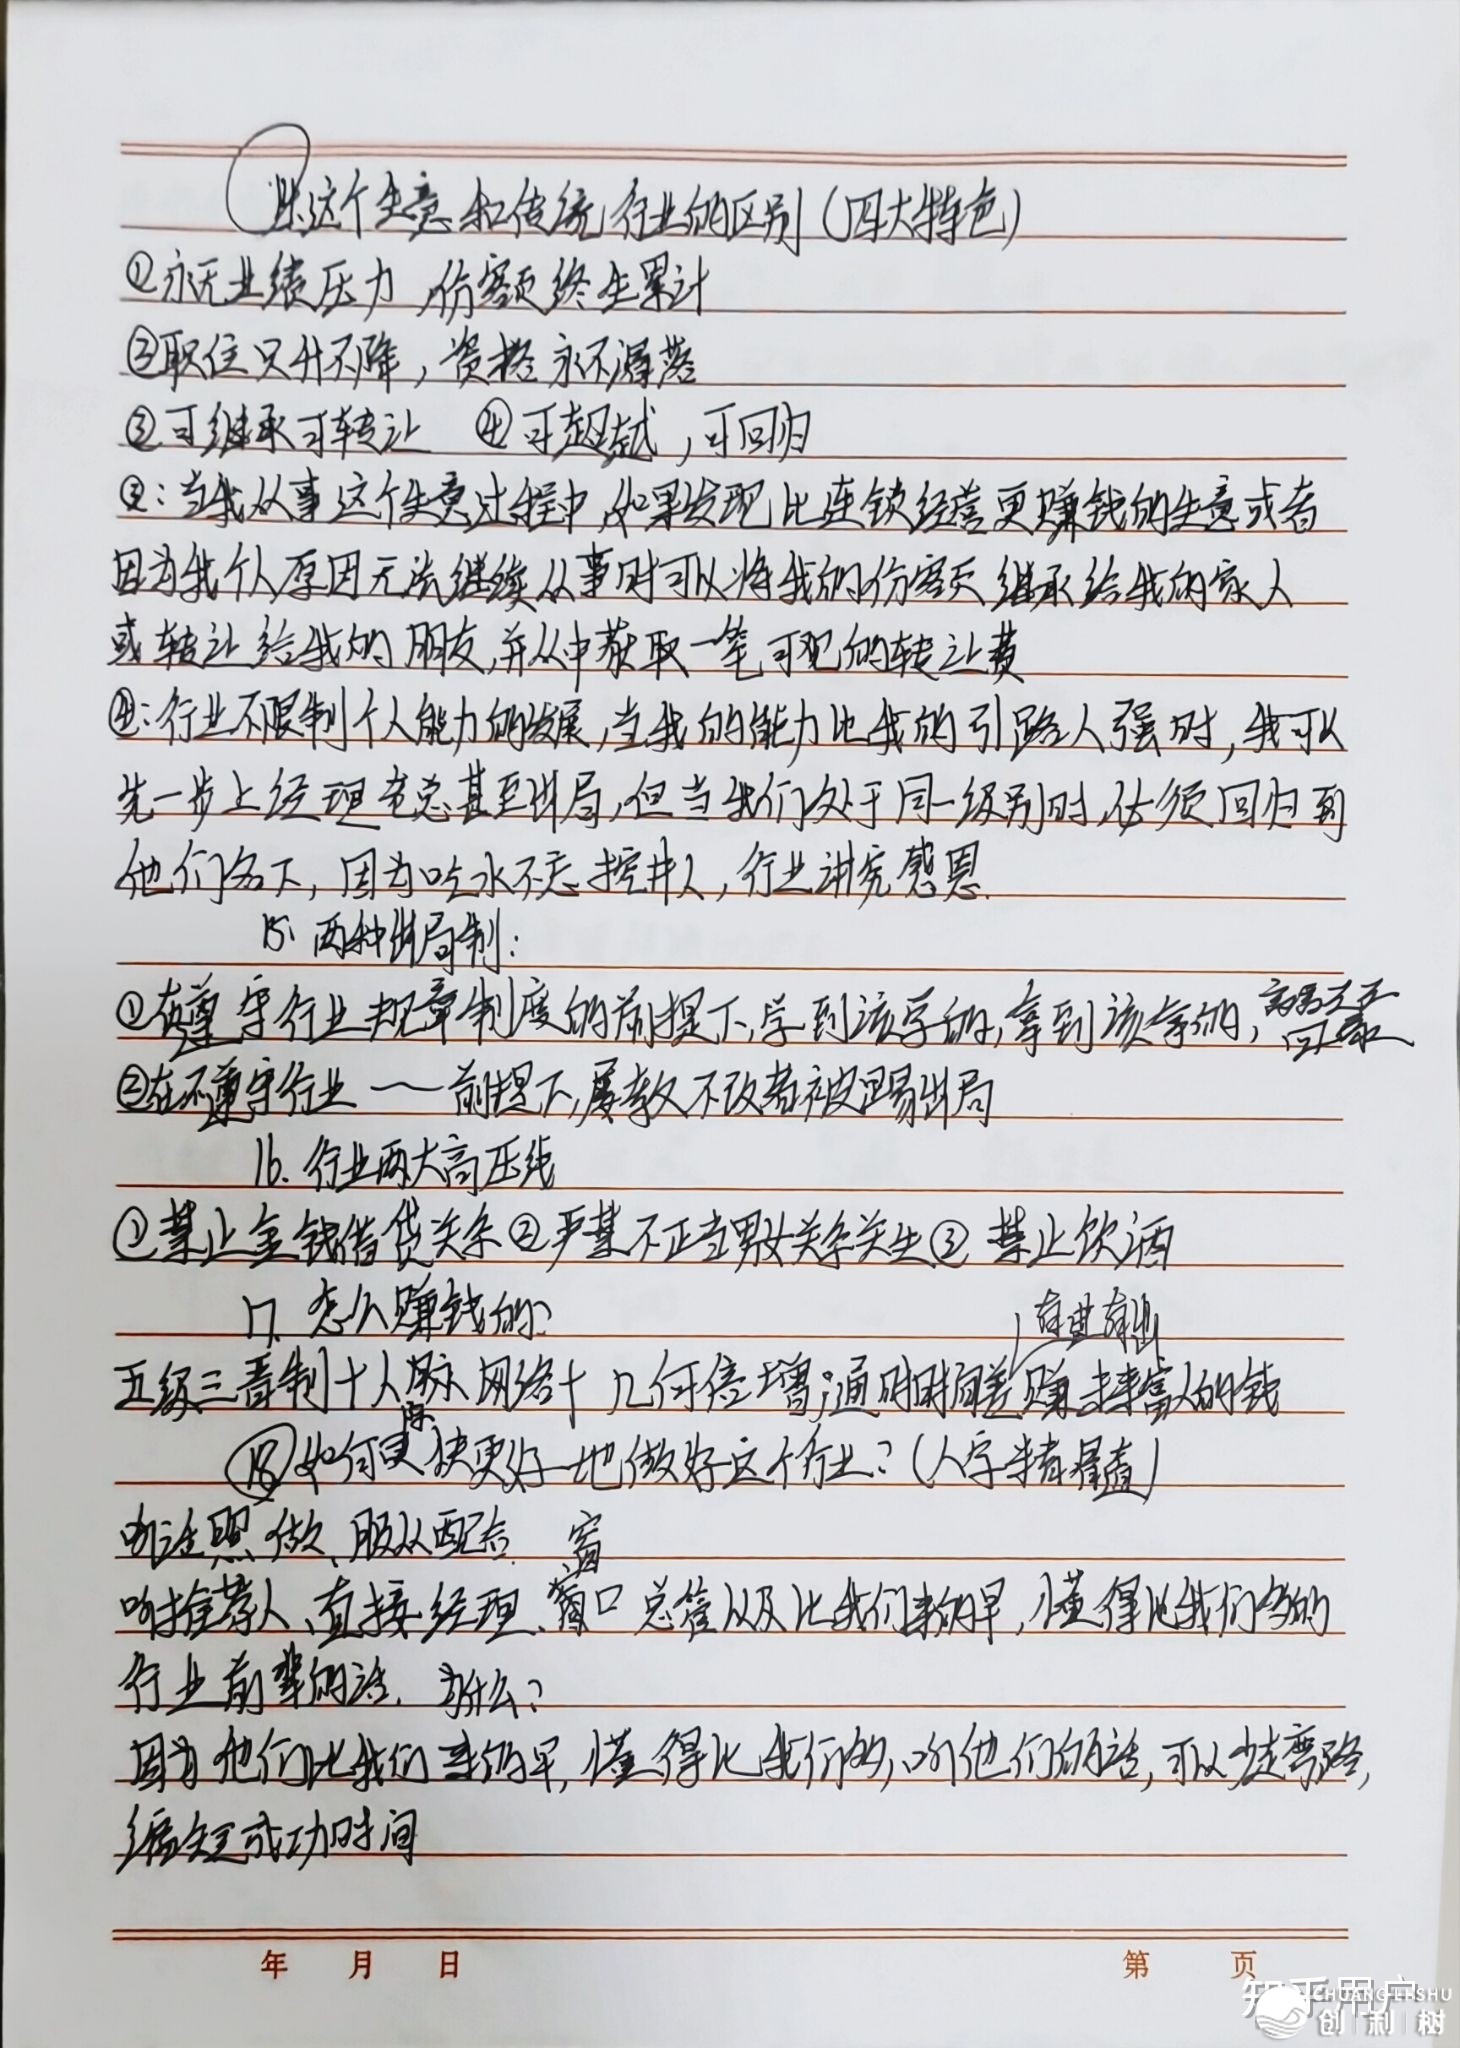 这个生意和传统行业的区别(四大特色)
①永无业绩压力,份额终生累计
②职位只升不降,资格永不滑落
③可继承可转让 ④可超越,可回归
③:当我从事这个生意过程中,如果发现比连锁经营更赚钱的生意或者
因为我个人原因无法继续从事时可以将我的份额继承给我的家人
或转让给我的朋友,并从中获取一笔可观的转让费
④:行业不限制个人能力的发展,当我的能力比我的引路人强时,我可以
先一步上经理老总甚至出局,但当我们处于同一级别时,必须回归到
他们名下,因为吃水不忘挖井人,行业讲究感恩.
15.两种出局制:
①在遵守行业规章制度的前提下,学到该学的,拿到该拿的,
回家
②在不遵守行业——前提下,屡教不改者被踢出局
16.行业两大高压线
①禁止金钱借贷关系②严禁不正当男女关系关生③禁止饮酒
17.怎么赚钱的?
有进有出
五级三晋制十人脉网络十几何倍增;通时时间差赚未来富人的钱
18如何更快更好地做好这个行业?(人字)
听话照做、服从配合. 窗
听推荐人、直接经理、窗口总管以及比我们来的早,懂得比我们多的
行业前辈的话. 为什么?
因为他们比我们来的早,懂得比我们多,听他们的话,可以少走弯路,
缩短成功时间
年 月 日 第 页
知乎用户
CHUANG LI SHU
创利树